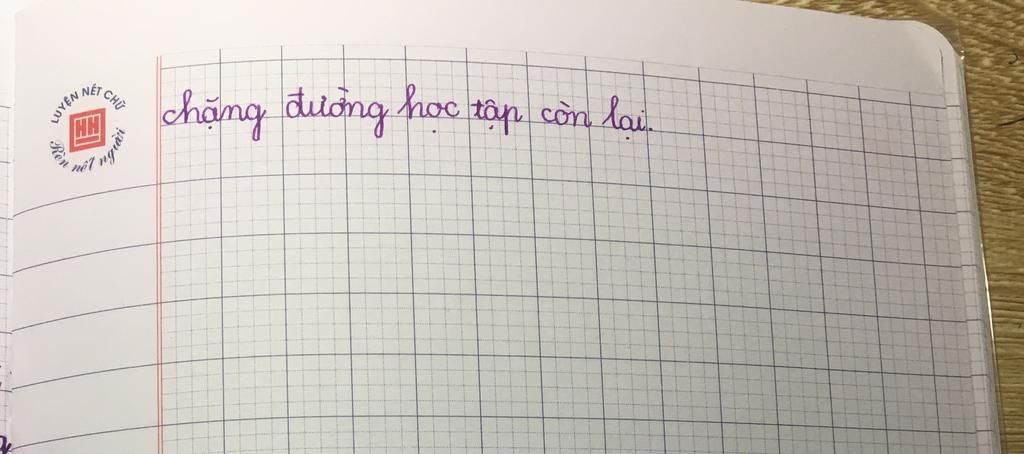 LUYỆN NÉT CHỮ
HH
Rèn nết người
chặng đường học tập còn lại.